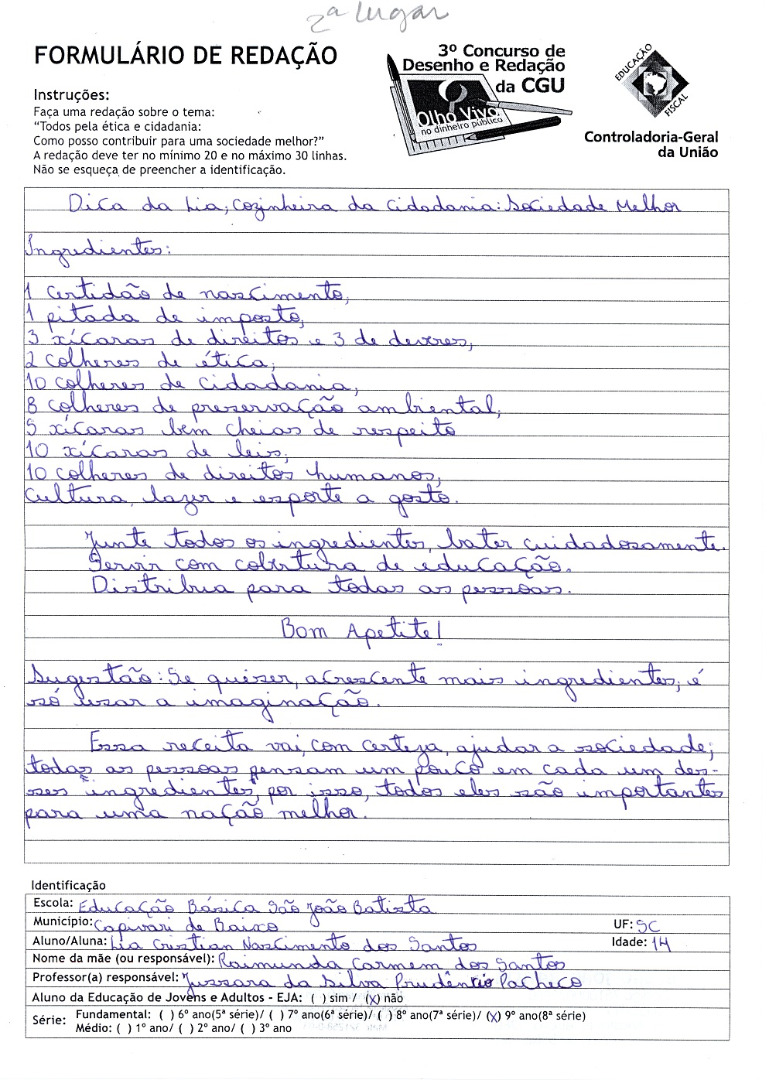 2º lugar
FORMULÁRIO DE REDAÇÃO
Instruções:
Faça uma redação sobre o tema:
“Todos pela ética e cidadania:
Como posso contribuir para uma sociedade melhor?”
A redação deve ter no mínimo 20 e no máximo 30 linhas.
Não se esqueça de preencher a identificação.
3º Concurso de
Desenho e Redação
da CGU
Olho Vivo
no dinheiro público
EDUCAÇÃO
FISCAL
Controladoria-Geral
da União
Dica da Lia, Cozinheira da Cidadania: Sociedade Melhor
Ingredientes:
1 certidão de nascimento,
1 pitada de imposto,
3 xícaras de direitos e 3 de deveres,
2 colheres de ética,
10 colheres de cidadania,
8 colheres de preservação ambiental,
5 xícaras bem cheias de respeito
10 xícaras de leis,
10 colheres de direitos humanos,
Cultura, lazer e esporte a gosto.
Junte todos os ingredientes, bater cuidadosamente.
Servir com cobertura de educação.
Distribua para todas as pessoas.
Bom Apetite!
Sugestão: Se quiser, acrescente mais ingredientes, é
só usar a imaginação.
Essa receita vai, com certeza, ajudar a sociedade;
todas as pessoas pensam um pouco em cada um des-
ses "ingredientes", por isso, todos eles são importantes
para uma nação melhor.
Identificação
Escola: Educação Básica São João Batista
Município: Capivari de Baixo UF: SC
Aluno/Aluna: Lia Cristian Nascimento dos Santos Idade: 14
Nome da mãe (ou responsável): Raimunda Carmem dos Santos
Professor(a) responsável: Jussara da Silva Prudêncio Pacheco
Aluno da Educação de Jovens e Adultos - EJA: ( ) sim / (x) não
Série: Fundamental: ( ) 6º ano(5ª série)/ ( ) 7º ano(6ª série)/ ( ) 8º ano(7ª série)/ (x) 9º ano(8ª série)
Médio: ( ) 1º ano/ ( ) 2º ano/ ( ) 3º ano